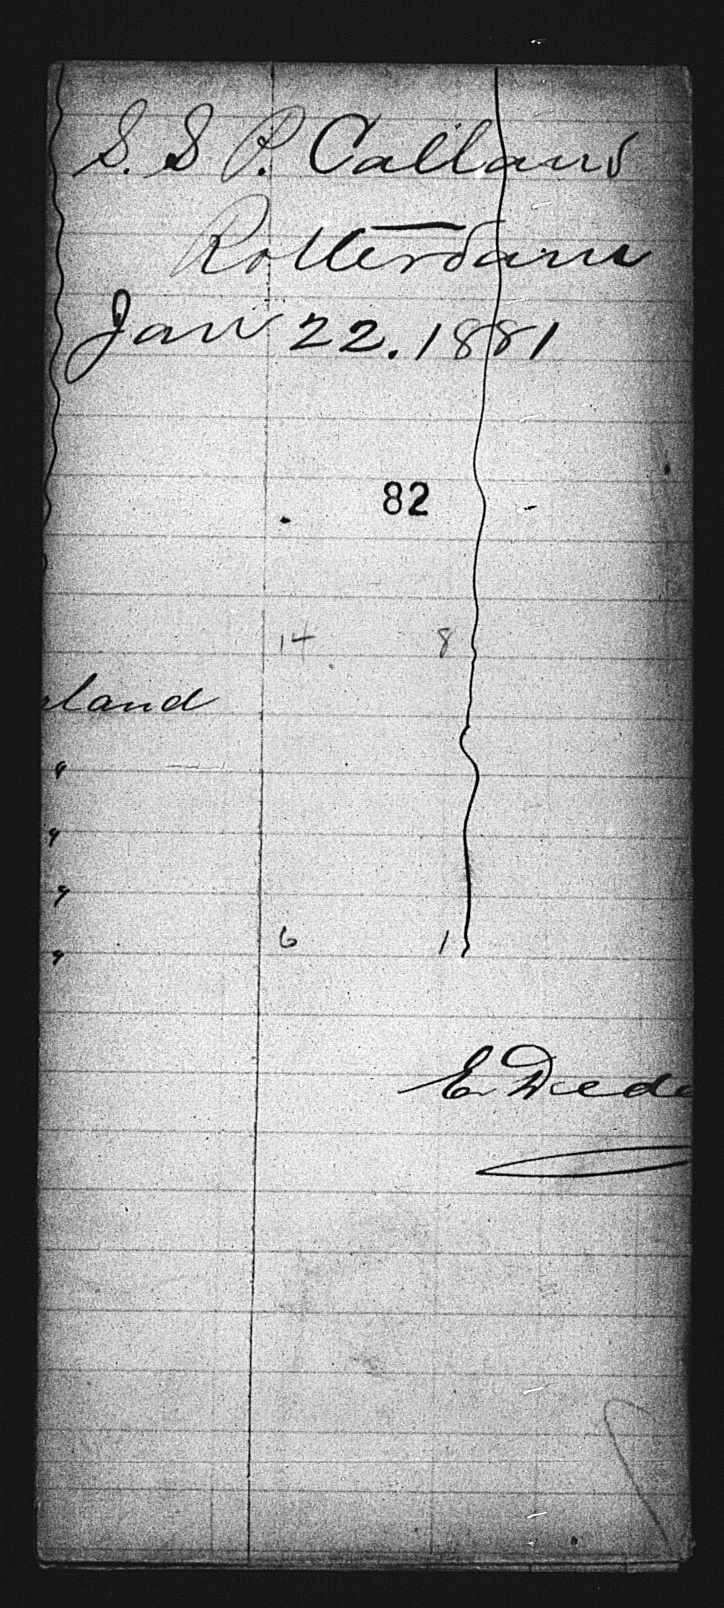 S. S P. Calland
Rotterdam
Jan 22. 1881
82
14 8
land
"
"
"
" 6 1
E.